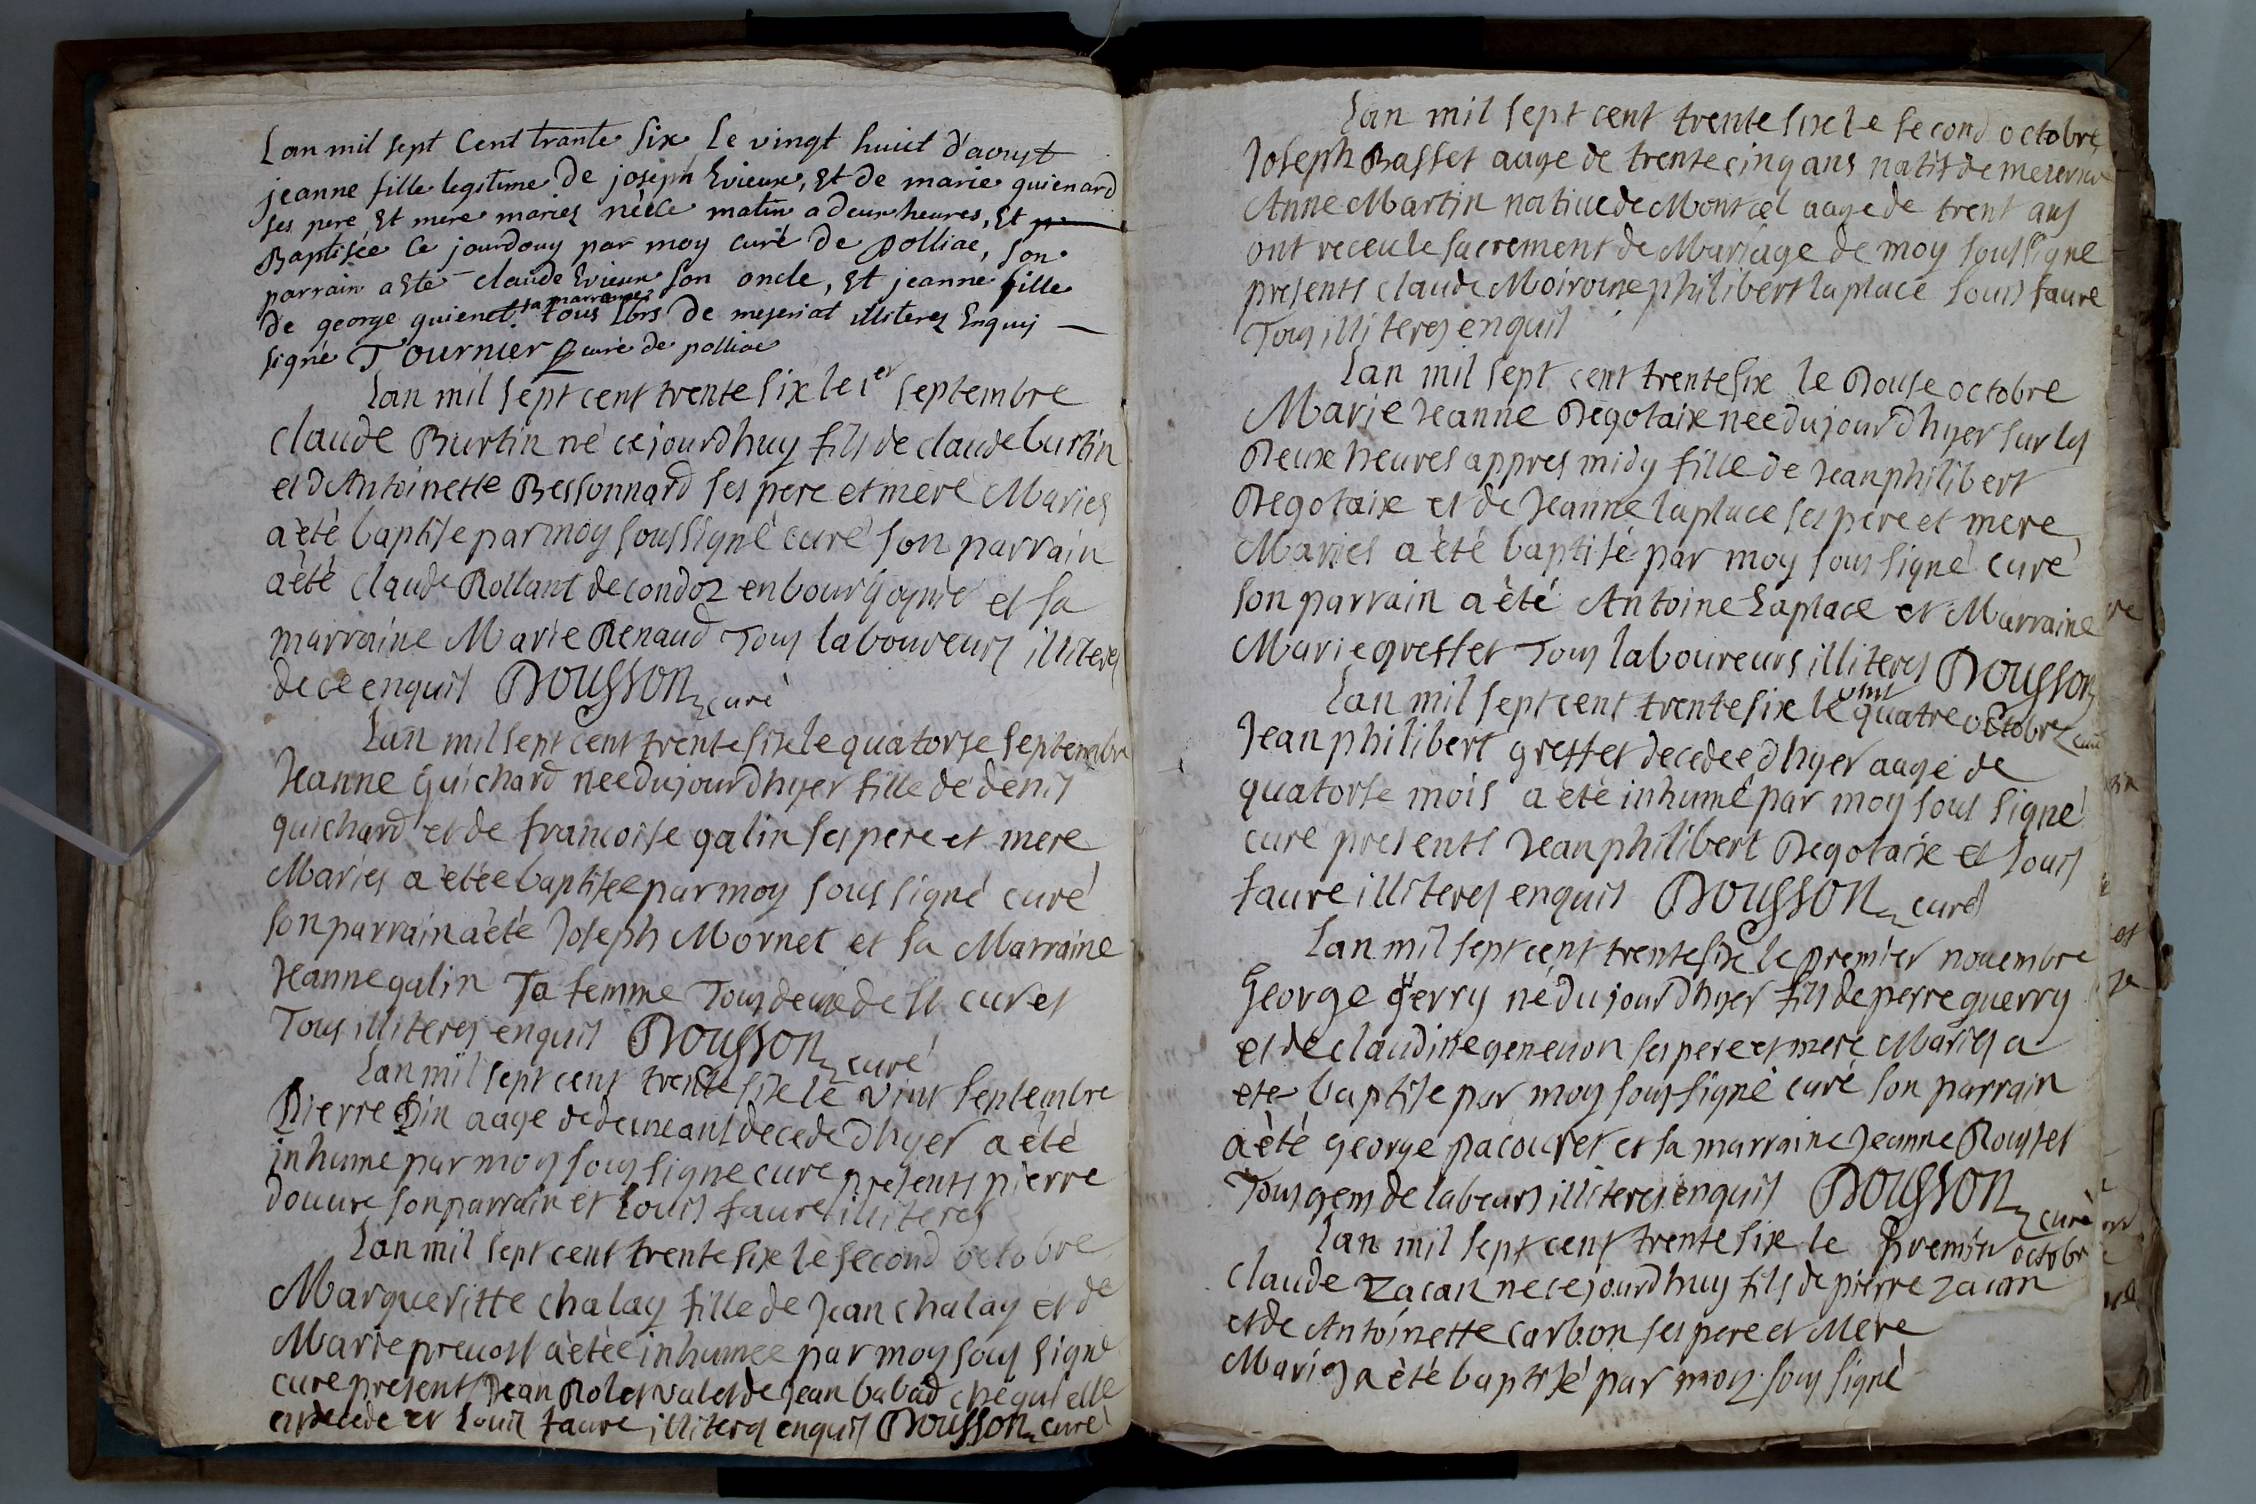 Lan mil sept Cent trante six le vingt huict d'aoust
jeanne fille legitime De joseph Evieux, Et de marie guienard
ses pere, Et mere mariez néèe ce matin a deux heures, Et
Baptisée Ce jourdouy par moy curé De polliac, son
parrain a Eté claude Evieux son oncle, Et jeanne fille
De george guienet. sa marraine tous Lbrs De meseriat illiterez Enquis
signé Tournier curé de polliac
Lan mil sept cent trente six le 1er septembre
claude Burtin né cejourdhuy fils de claude burtin
et dAntoinette Bessonnard ses pere et mere Maries
a èté baptise par moy soussigné curé son parrain
a èté claude Rollant de condoz en bourgogne et sa
marraine Marie Renaud Tous laboureurs illiteres
de ce enquis Dousson curé
Lan mil sept cent trente six le quatorse septembre
Jeanne guichard needujourdhyer fille de denis
guichard et de francoise galin ses pere et mere
Maries a ètée baptisee par moy sous signé curé
son parrain a èté Joseph Mornet et sa Marraine
Jeanne galin sa femme Tous deux de st curet
Tous illiteres enquis Dousson curé
Lan mil sept cent trente six le vint septembre
Pierre Pin aage de deux ans decede dhyer a èté
inhume par moy sous signe cure presents pierre
douure son parrain et Louis faure illiteres
Lan mil sept cent trente six le second octobre
Margueritte chalay fille de Jean chalay et de
Marie preuost a ètée inhumee par moy sous signe
cure presents Jean Rolet valet de Jean babad ché qui elle
et decede et Louis faure illiteres enquis Dousson curé
Lan mil sept cent trente six le second octobre
Joseph Basset aage de trente cinq ans natif de
Anne Martin natiue de Montcel aage de trent ans
ont receu le sacrement de Mariage de moy soussigne
presents claude Moiroux philibert laplace Louis faure
Tous illiteres enquis
Lan mil sept cent trente six le Douse octobre
Marie Jeanne Degotaix nee du jour dhyer sur les
Deux heures appres midy fille de Jean philibert
Degotaix et de Jeanne laplace ses pere et mere
Maries a èté baptisé par moy sous signé curé
son parrain a èté Antoine Laplace et Marraine
Marie greffet Tous laboureurs illiteres Dousson
Lan mil sept cent trente six le vint quatre octobre curé
Jean philibert greffet decedee dhyer aage de
quatorse mois a èté inhumé par moy sous signé
cure presents Jean philibert Degotaix et Louis
faure illiteres enquis Dousson curé
Lan mil sept cent trente six le premier nouembre
George gerry né du jour dhyer fils de perre guerry
et de claudine geneuon ses pere et mere Maries a
ete baptise par moy sous signé curé son parrain
a èté george pacouret et sa marraine Jeanne Rousset
Tous gens de labeurs illiteres enquis Dousson curé
Lan mil sept cent trente six le Premier octobr
claude Zacan ne ce jourdhuy fils de pierre zacan
et de Antoinette carbon ses pere et Mere
Maries a èté baptisé par moy sous signé